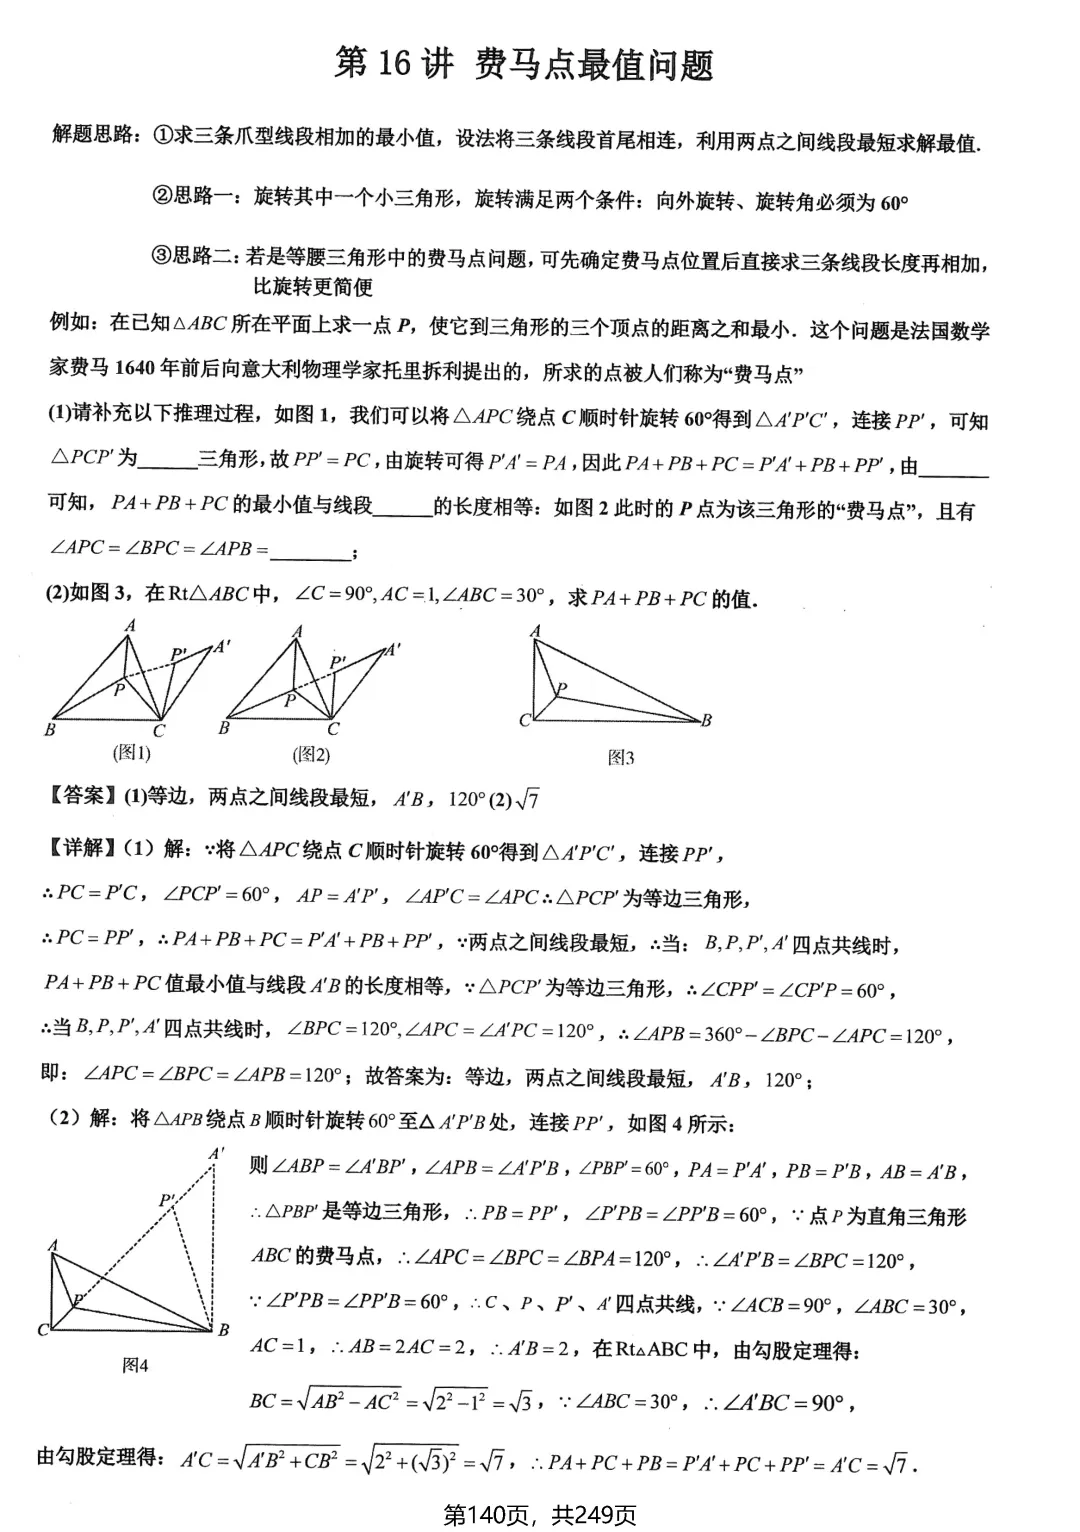 第 16 讲 费马点最值问题
解题思路：①求三条爪型线段相加的最小值，设法将三条线段首尾相连，利用两点之间线段最短求解最值.
②思路一：旋转其中一个小三角形，旋转满足两个条件：向外旋转、旋转角必须为 60°
③思路二：若是等腰三角形中的费马点问题，可先确定费马点位置后直接求三条线段长度再相加，
比旋转更简便
例如：在已知△ABC 所在平面上求一点 P，使它到三角形的三个顶点的距离之和最小．这个问题是法国数学
家费马 1640 年前后向意大利物理学家托里拆利提出的，所求的点被人们称为“费马点”
(1)请补充以下推理过程，如图 1，我们可以将△APC 绕点 C 顺时针旋转 60°得到△A′P′C′，连接 PP′，可知
△PCP′为______三角形，故 PP′ = PC，由旋转可得 P′A′ = PA，因此 PA + PB + PC = P′A′ + PB + PP′，由_______
可知，PA + PB + PC 的最小值与线段______的长度相等：如图 2 此时的 P 点为该三角形的“费马点”，且有
∠APC = ∠BPC = ∠APB = ________；
(2)如图 3，在 Rt△ABC 中，∠C = 90°, AC = 1, ∠ABC = 30°，求 PA + PB + PC 的值．
A
P′
A′
P
B
C
(图1)
A
P′
A′
P
B
C
(图2)
A
P
C
B
图3
【答案】(1)等边，两点之间线段最短，A′B，120° (2) √7
【详解】（1）解：∵将△APC 绕点 C 顺时针旋转 60°得到△A′P′C′，连接 PP′，
∴PC = P′C，∠PCP′ = 60°，AP = A′P′，∠AP′C = ∠APC∴△PCP′为等边三角形，
∴PC = PP′，∴PA + PB + PC = P′A′ + PB + PP′，∵两点之间线段最短，∴当：B, P, P′, A′ 四点共线时，
PA + PB + PC 值最小值与线段 A′B 的长度相等，∵△PCP′为等边三角形，∴∠CPP′ = ∠CP′P = 60°，
∴当 B, P, P′, A′ 四点共线时，∠BPC = 120°, ∠APC = ∠A′PC = 120°，∴∠APB = 360° − ∠BPC − ∠APC = 120°，
即：∠APC = ∠BPC = ∠APB = 120°；故答案为：等边，两点之间线段最短，A′B，120°；
（2）解：将△APB 绕点 B 顺时针旋转 60° 至△ A′P′B 处，连接 PP′，如图 4 所示：
A′
P′
A
P
C
B
图4
则∠ABP = ∠A′BP′，∠APB = ∠A′P′B，∠PBP′ = 60°，PA = P′A′，PB = P′B，AB = A′B，
∴△PBP′是等边三角形，∴PB = PP′，∠P′PB = ∠PP′B = 60°，∵点 P 为直角三角形
ABC 的费马点，∴∠APC = ∠BPC = ∠BPA = 120°，∴∠A′P′B = ∠BPC = 120°，
∵∠P′PB = ∠PP′B = 60°，∴C、P、P′、A′ 四点共线，∵∠ACB = 90°，∠ABC = 30°，
AC = 1，∴AB = 2AC = 2，∴A′B = 2，在 Rt△ABC 中，由勾股定理得：
BC = √(AB² − AC²) = √(2² − 1²) = √3，∵∠ABC = 30°，∴∠A′BC = 90°，
由勾股定理得：A′C = √(A′B² + CB²) = √(2² + (√3)²) = √7，∴PA + PC + PB = P′A′ + PC + PP′ = A′C = √7．
第140页，共249页